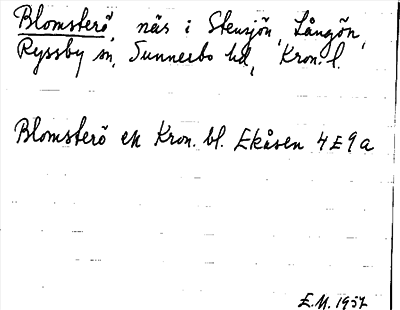 Blomsterö, näs i Stensjön, Långön,
Ryssby sn, Sunnerbo hd, Kron. l.
Blomsterö ek Kron. bl. Ekåsen 4E9a
E.M. 1957